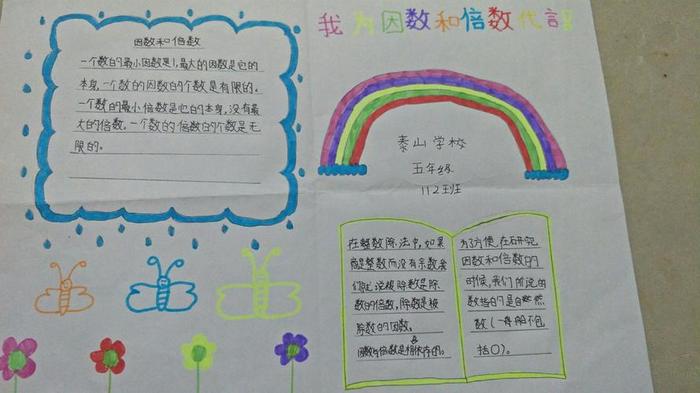 我为因数和倍数代言
因数和倍数
一个数的最小因数是1,最大的因数是它的
本身,一个数的因数的个数是有限的。
一个数的最小倍数是它的本身,没有最
大的倍数。一个数的倍数的个数是无
限的。
泰山学校
五年级
112班
在整数除法中,如果
商是整数而没有余数我
们就说被除数是除
数的倍数,除数是被
除数的因数。
因数与倍数是相依存的。
为了方便,在研究
因数和倍数的
时候,我们所说的
数指的是自然
数(一般不包
括0)。